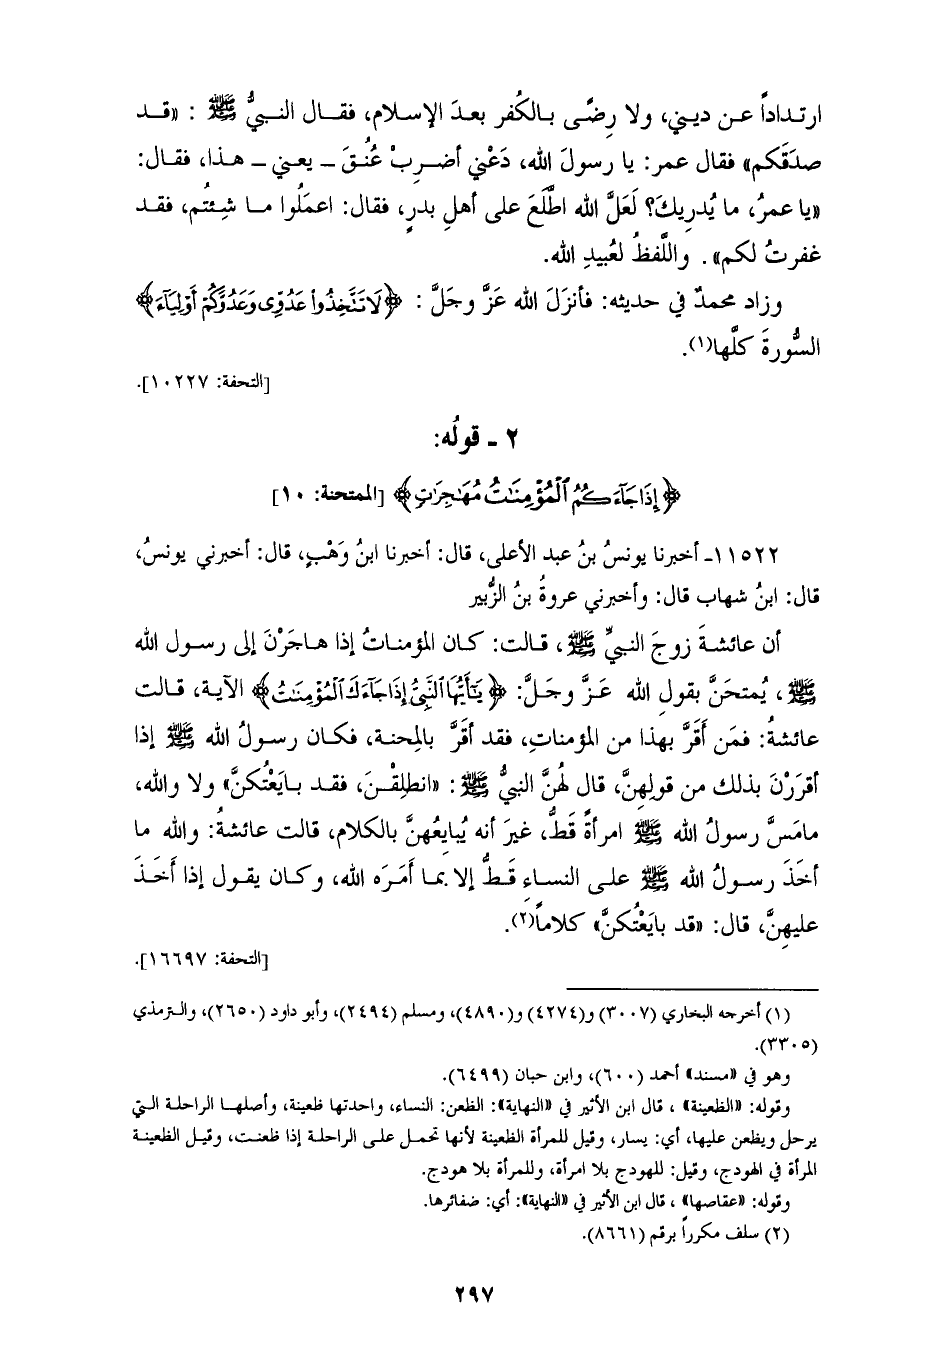 ارتداداً عن ديني، ولا رِضًى بالكُفر بعدَ الإسلام، فقال النبيُّ ﷺ : «قد
صدَقَكم» فقال عمر: يا رسولَ الله، دَعْني أضربْ عُنُقَ ـ يعني ـ هذا، فقال:
«يا عمرُ، ما يُدرِيكَ؟ لَعَلَّ الله اطَّلَعَ على أهلِ بدرٍ، فقال: اعمَلُوا ما شِئتُم، فقد
غفرتُ لكم» . واللَّفظُ لعُبيدِ الله.
وزاد محمدٌ في حديثه: فأنزلَ الله عَزَّ وجَلَّ : ﴿لَا تَتَّخِذُوا۟ عَدُوِّى وَعَدُوَّكُمْ أَوْلِيَآءَ﴾
السُّورةَ كلَّها(١).
[التحفة: ١٠٢٢٧].
٢ ـ قولُه:
﴿إِذَا جَآءَكُمُ ٱلْمُؤْمِنَـٰتُ مُهَـٰجِرَٰتٍ﴾ [الممتحنة: ١٠]
١١٥٢٢ـ أخبرنا يونسُ بنُ عبد الأعلى، قال: أخبرنا ابنُ وَهْبٍ، قال: أخبرني يونسُ،
قال: ابنُ شهاب قال: وأخبرني عروةُ بنُ الزُّبير
أن عائشةَ زوجَ النبيِّ ﷺ، قالت: كان المؤمناتُ إذا هاجَرْنَ إلى رسول الله
ﷺ، يُمتحَنَّ بقولِ الله عَزَّ وجَلَّ: ﴿يَـٰٓأَيُّهَا ٱلنَّبِىُّ إِذَا جَآءَكَ ٱلْمُؤْمِنَـٰتُ﴾ الآية، قالت
عائشةُ: فمَن أَقَرَّ بهذا من المؤمناتِ، فقد أقَرَّ بالمِحنة، فكان رسولُ الله ﷺ إذا
أقرَرْنَ بذلك من قولِهنَّ، قال لهُنَّ النبيُّ ﷺ : «انطلِقْنَ، فقد بايَعْتُكنَّ» ولا والله،
مامَسَّ رسولُ الله ﷺ امرأةً قَطُّ، غيرَ أنه يُبايِعُهنَّ بالكلام، قالت عائشةُ: والله ما
أخَذَ رسولُ الله ﷺ على النساءِ قَطُّ إلا بما أَمَرَه الله، وكان يقول إذا أَخَذَ
عليهِنَّ، قال: «قد بايَعْتُكنَّ» كلاماً(٢).
[التحفة: ١٦٦٩٧].
(١) أخرجه البخاري (٣٠٠٧) و(٤٢٧٤) و(٤٨٩٠)، ومسلم (٢٤٩٤)، وأبو داود (٢٦٥٠)، والترمذي
(٣٣٠٥).
وهو في «مسند» أحمد (٦٠٠)، وابن حبان (٦٤٩٩).
وقوله: «الظعينة» ، قال ابن الأثير في «النهاية»: الظعن: النساء، واحدتها ظعينة، وأصلها الراحلة التي
يرحل ويظعن عليها، أي: يسار، وقيل للمرأة الظعينة لأنها تحمل على الراحلة إذا ظعنت، وقيل الظعينة
المرأة في الهودج، وقيل: للهودج بلا امرأة، وللمرأة بلا هودج.
وقوله: «عقاصها» ، قال ابن الأثير في «النهاية»: أي: ضفائرها.
(٢) سلف مكرراً برقم (٨٦٦١).
٢٩٧